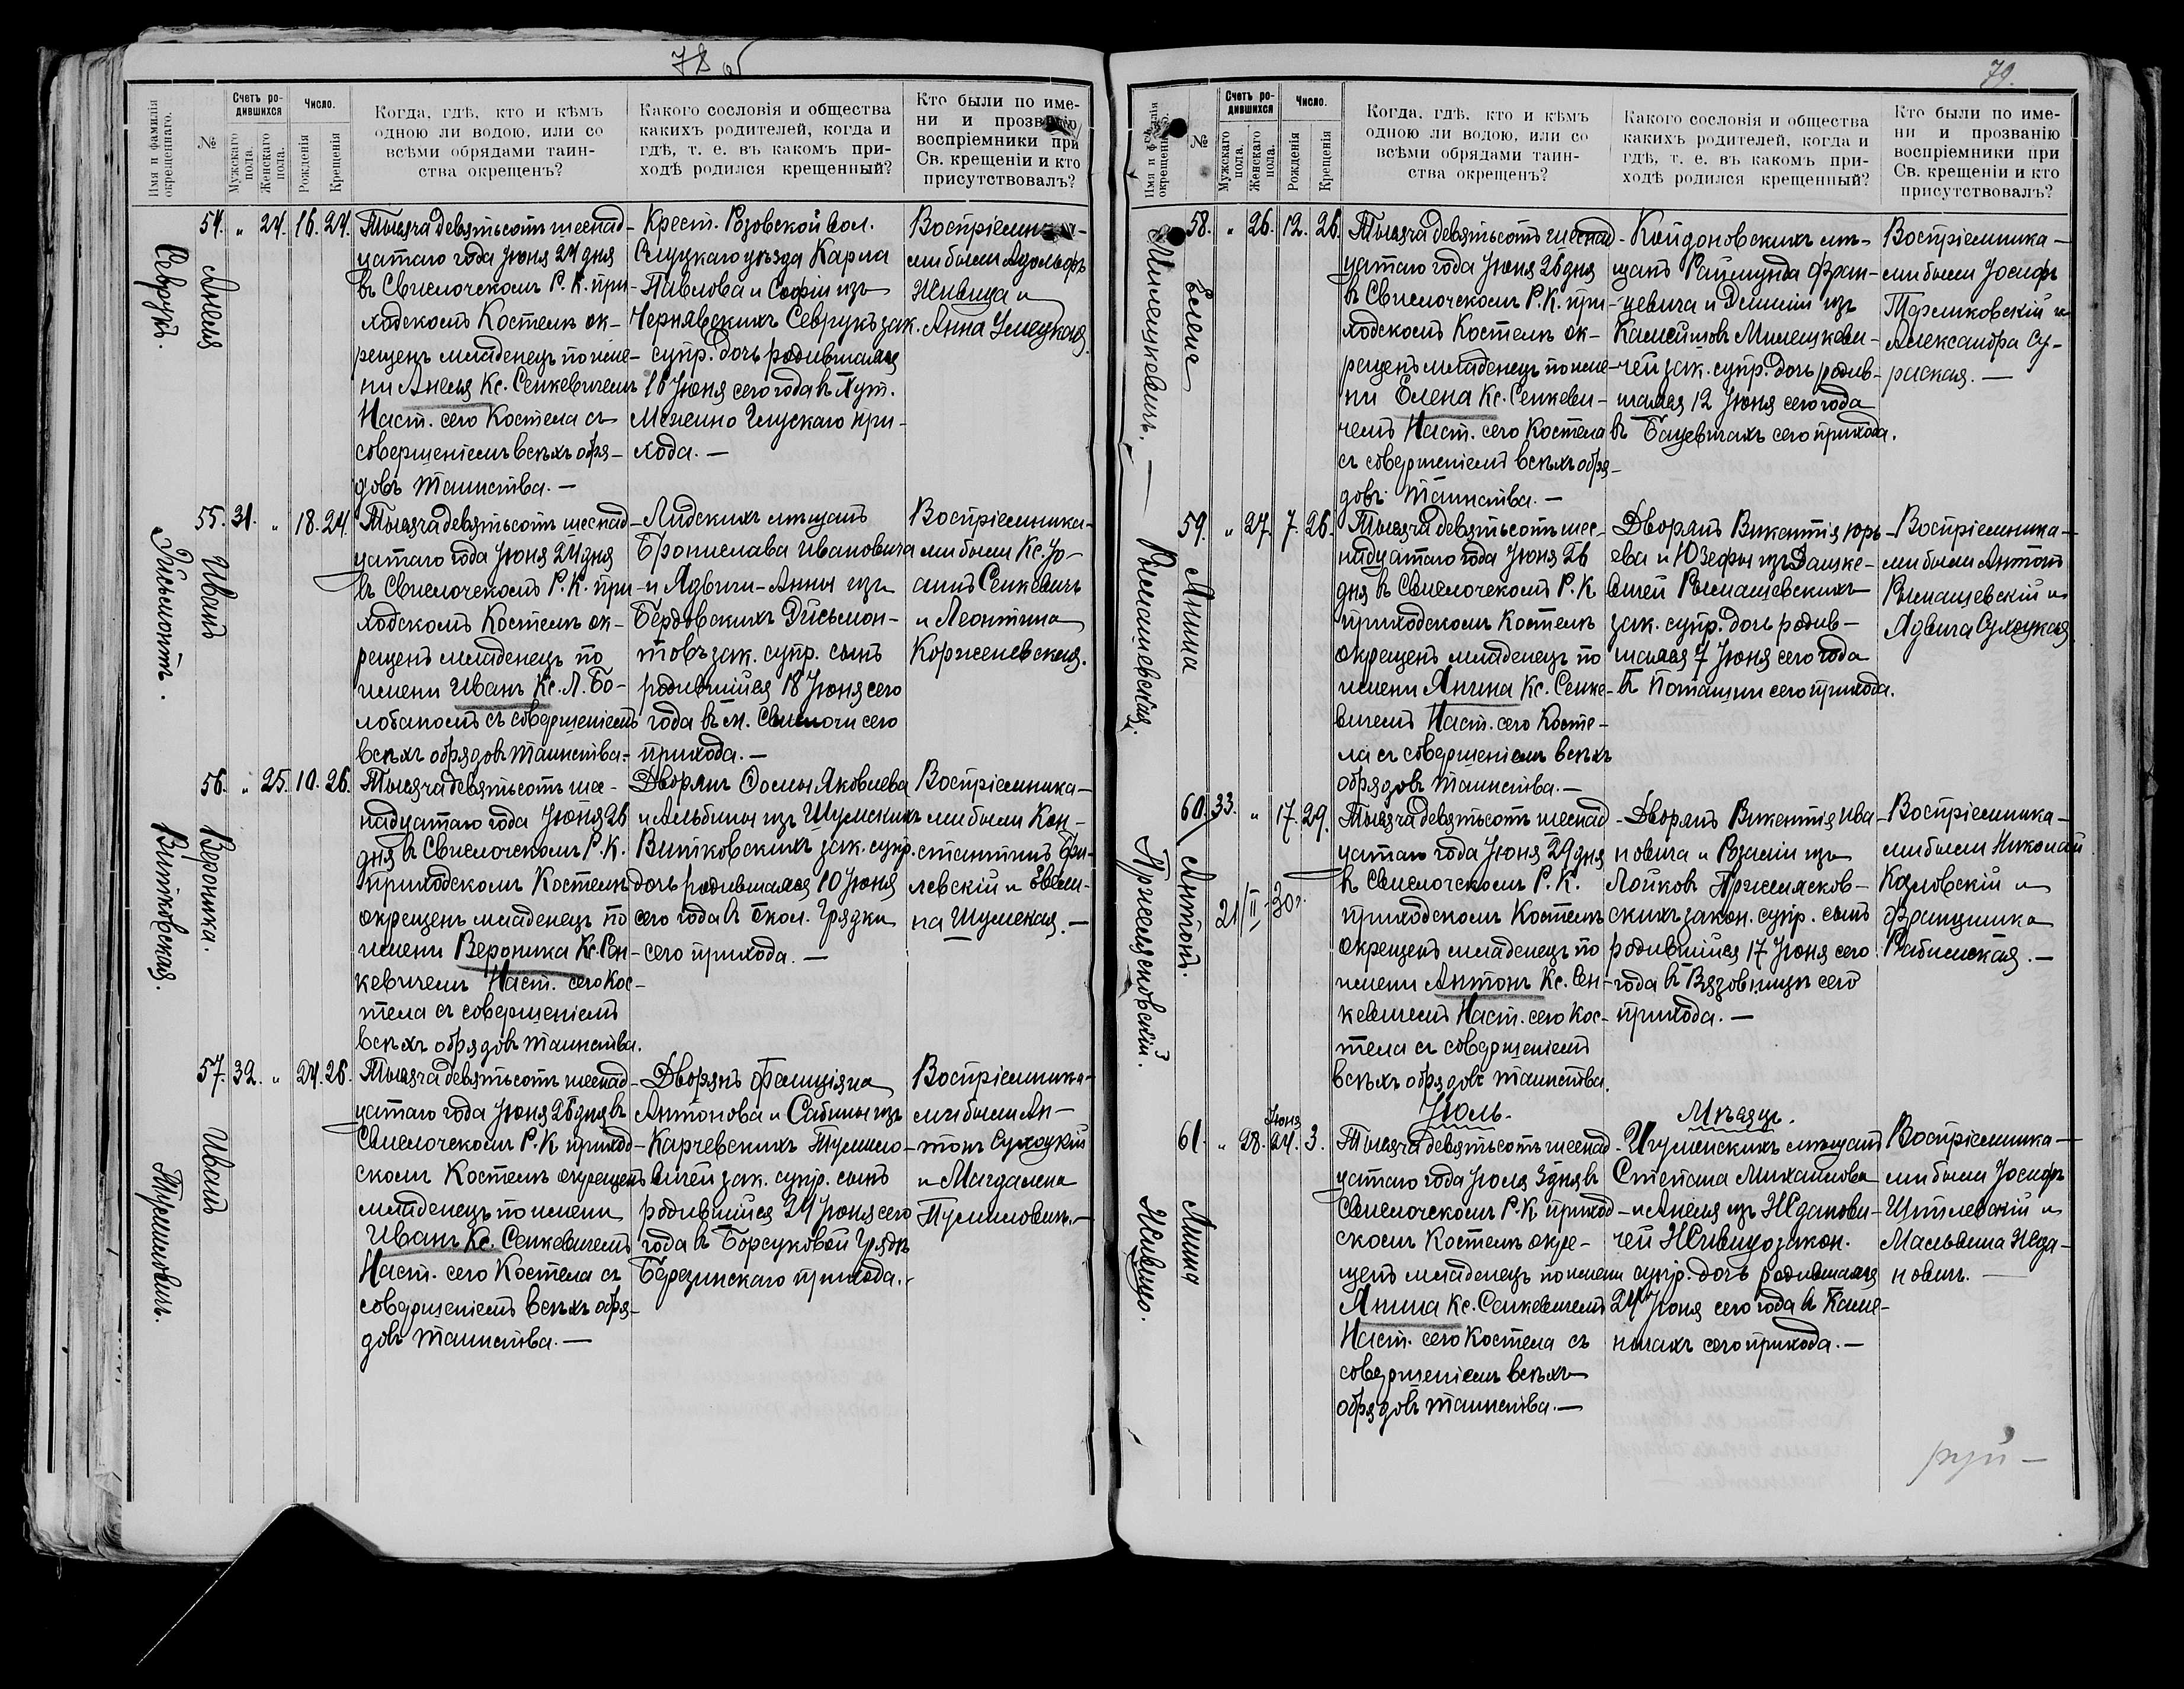 78 об
Имя и фамилія окрещеннаго.
№
Счетъ родившихся
Мужскаго пола.
Женскаго пола.
Число.
Рожденія
Крещенія
Когда, гдѣ, кто и кѣмъ
одною ли водою, или со
всѣми обрядами таин-
ства окрещенъ?
Какого сословія и общества
какихъ родителей, когда и
гдѣ, т. е. въ какомъ при-
ходѣ родился крещенный?
Кто были по име-
ни и прозванію
воспріемники при
Св. крещеніи и кто
присутствовалъ?
Севрукъ.
Анеля
54. " 24. 16. 24.
Тысяча девятьсотъ шеснад-
цатаго года Іюня 24 дня
въ Свислочскомъ Р. К. при-
ходскомъ Костелѣ ок-
рещенъ младенецъ по име-
ни Анеля Кс. Сенкевичемъ
Наст. сего Костела съ
совершеніемъ всѣхъ обря-
довъ таинства. —
Крест. Розовской вол.
Слуцкаго уѣзда Карла
Павлова и Софіи изъ
Чернявскихъ Севрукъ зак.
супр. дочь родившаяся
16 Іюня сего года в Хут.
Меженно Глускаго при-
хода. —
ми были Адольфъ
Живица и
Анна Улецкая.
Дисьмонтъ.
Иванъ
55. 31. " 18. 24.
Тысяча девятьсотъ шеснад-
цатаго года Іюня 24 дня
въ Свислочскомъ Р. К. при-
ходскомъ Костелѣ ок-
рещенъ младенецъ по
имени Иванъ Кс. Л. Бо-
лобаномъ съ совершеніемъ
всѣхъ обрядовъ таинства-
Лидскихъ мѣщанъ
Бронислава Ивановича
и Ядвиги-Анны изъ
Бердовскихъ Дисьмон-
товъ зак. супр. сынъ
родившійся 18 Іюня сего
года въ м. Свислочи сего
прихода. —
Воспріемника-
ми были Кс. Іо-
аннъ Сенкевичъ
и Леонтина
Корженевская.
Витковская.
Вероника.
56. " 25. 10. 26.
Тысяча девятьсотъ шес-
надцатаго года Іюня 26
дня в Свислочскомъ Р. К.
приходскомъ Костелѣ
окрещенъ младенецъ по
имени Вероника Кс. Сен-
кевичемъ Наст. сего Кос-
тела съ совершеніемъ
всѣхъ обрядовъ таинства.
Дворянъ Яковлева
и Альбины изъ Шумскихъ
Витковскихъ зак. супр.
дочь родившаяся 10 Іюня
сего года в Окол. Грядки
сего прихода. —
Воспріемника-
ми были Кон-
стантинъ
левскій и Эвели-
на Шумская. —
Тумиловичъ.
Иванъ
57. 32. " 24. 26.
Тысяча девятьсотъ шеснад-
цатаго года Іюня 26 дня в
Свислочскомъ Р. К. приход-
скомъ Костелѣ окрещенъ
младенецъ по имени
Иванъ Кс. Сенкевичемъ
Наст. сего Костела съ
совершеніемъ всѣхъ обря-
довъ таинства. —
Дворянъ Фелиціяна
Антонова и Сабины изъ
Карчевскихъ Тумило-
вичей зак. супр. сынъ
родившійся 24 Іюня сего
года в Борсуковой Грядѣ
Березинскаго прихода. -
Воспріемника-
ми были Ан-
тонъ Сухоцкій
и Магдалена
Тумиловичъ. -
79.
Имя и фамилія окрещеннаго.
№
Счетъ родившихся
Мужскаго пола.
Женскаго пола.
Число.
Рожденія
Крещенія
Когда, гдѣ, кто и кѣмъ
одною ли водою, или со
всѣми обрядами таин-
ства окрещенъ?
Какого сословія и общества
какихъ родителей, когда и
гдѣ, т. е. въ какомъ при-
ходѣ родился крещенный?
Кто были по име-
ни и прозванію
воспріемники при
Св. крещеніи и кто
присутствовалъ?
Милешкевичъ. —
Елена
58. " 26. 12. 26.
Тысяча девятьсотъ шеснад-
цатаго года Іюня 26 дня
в Свислочскомъ Р. К. при-
ходскомъ Костелѣ ок-
рещенъ младенецъ по име-
ни Елена Кс. Сенкеви-
чемъ Наст. сего Костела
съ совершеніемъ всѣхъ обря-
довъ таинства. —
Койдоновскихъ мѣ-
щанъ Раймунда Фран-
цевича и изъ
Милешкеви-
чей зак. супр. дочь родив-
шаяся 12 Іюня сего года
въ Бацевичахъ сего прихода.
Воспріемника-
ми были Іосифъ
и
Александра Су-
раская. —
Рымашевская.
Янина
59. " 27. 7. 26.
Тысяча девятьсотъ шес-
надцатаго года Іюня 26
дня в Свислочскомъ Р. К
приходскомъ Костелѣ
окрещенъ младенецъ по
имени Янина Кс. Сенке-
вичемъ Наст. сего Косте-
ла съ совершеніемъ всѣхъ
обрядовъ таинства. —
Дворянъ Викентія Юрь-
ева и Юзефы изъ Дашке-
вичей Рымашевскихъ
зак. супр. дочь родив-
шаяся 7 Іюня сего года
въ Поташни сего прихода.
Воспріемника-
ми были Антонъ
Рымашевскій и
Ядвига Сухоцкая.
Пржесмясновскій.
Антонъ.
60. 33. " 17. 29.
21/II - 30 г.
Тысяча девятьсотъ шеснад-
цатаго года Іюня 29 дня
в Свислочскомъ Р. К.
приходскомъ Костелѣ
окрещенъ младенецъ по
имени Антонъ Кс. Сен-
кевичемъ Наст. сего Кос-
тела съ совершеніемъ
всѣхъ обрядовъ таинства.
Дворянъ Викентія Ива-
новича и Розаліи изъ
Лойковъ
скихъ закон. супр. сынъ
родившійся 17 Іюня сего
года в Вязовницѣ сего
прихода. —
Воспріемника-
ми были Николай
Козловскій и
Францишка
Рабинская. —
Іюль. Мѣсяцъ.
Живицо.
Янина
61. " 28. Іюня 24. 3.
Тысяча девятьсотъ шеснад-
цатаго года Іюля 3 дня в
Свислочскомъ Р. К. приход-
скомъ Костелѣ окре-
щенъ младенецъ по имени
Янина Кс. Сенкевичемъ
Наст. сего Костела съ
совершеніемъ всѣхъ
обрядовъ таинства. —
Игуменскихъ мѣщанъ
Степана Михаилова
и Анеля изъ Жданови-
чей Живицо закон.
супр. дочь родившаяся
24 Іюня сего года в Каме-
ничахъ сего прихода. —
Воспріемника-
ми были Іосифъ
Шпилевскій и
Мальвина Жда-
новичъ. —